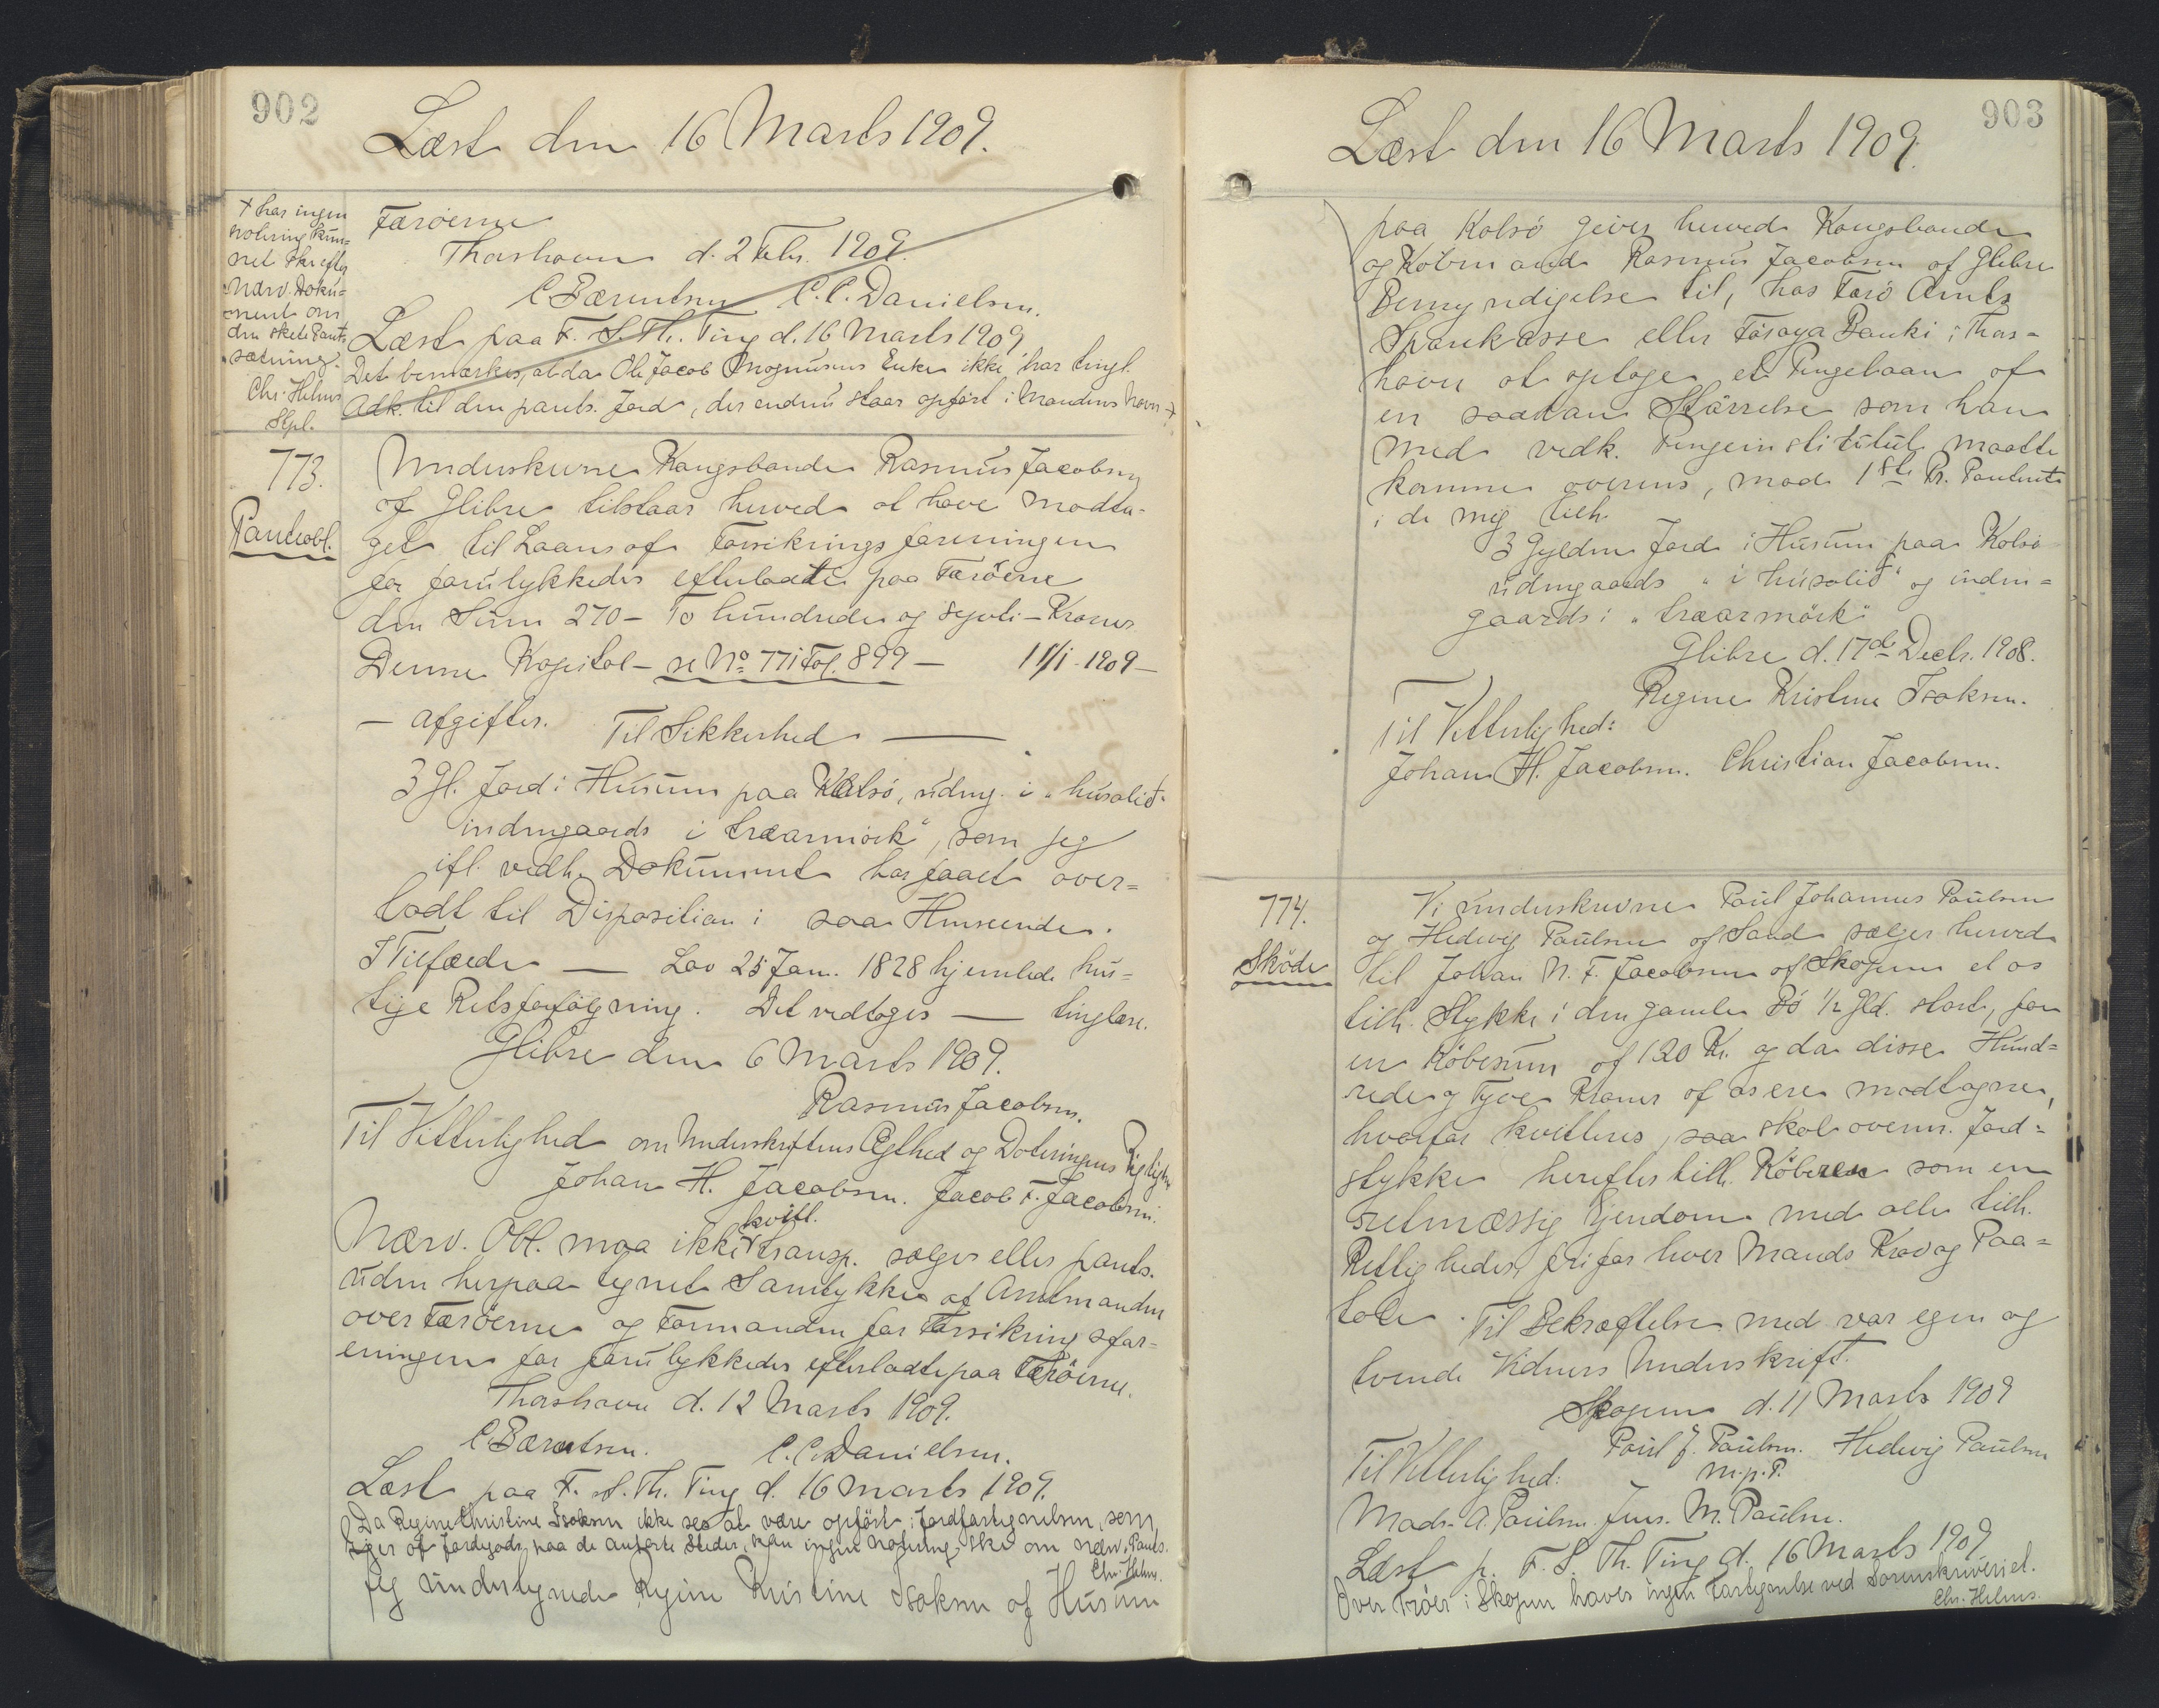 902
Læst den 16 Marts 1909.
+ har ingen
notering kun-
net ske efter
nærv. Doku-
ment om
den skete Pant-
sætning.
Chr. Helms
Spl.
Færöerne
Thorshavn d. 2 Febr. 1909.
C Bærentsen C. C. Danielsen.
Læst paa F. S. Th. Ting d. 16 Marts 1909
Det bemærkes, at da Ole Jacob Mognussens Enke ikke har tingl.
Adk. til den pants. Jord, der endnu staar opført i Mandens Navn +
773.
Panteobl.
Underskrevne Kongsbonde Rasmus Jacobsen
af Glibre tilstaar herved at have modta-
get til Laans af Forsikringsforeningen
for forulykkedes efterladte paa Færöerne
den Sum 270 - To hundrede og syvti - Kroner
Denne Kapital - se No 771 Fol. 899 - 11/1 - 1909 -
- afgifter. Til Sikkerhed -
3 Gl. Jord i Husum paa Kalsö, udeng. i „husalid"
indengaards i træarmörk", som jeg
ifl. vedh. Dokument har faaet over-
ladt til Disposition i saa Henseende.
I Tilfælde - Lov 25 Jan. 1828 hjemlede hur-
tige Retsforfölgning. Det vedtages - tinglæse.
Glibre den 6 Marts 1909.
Rasmus Jacobsen.
Til Vitterlighed om Underskriftens Ægthed og Dateringens Rigtighed
Johan H. Jacobsen. Jacob F. Jacobsen.
Nærv. Obl. maa ikke kvitt. transp. sælges eller pants.
uden herpaa tegnet Samtykke af Amtmanden
over Færöerne og Formanden for Forsikringsfor-
eningen for forulykkedes efterladte paa Færöerne.
Thorshavn d. 12 Marts 1909.
C Bærentsen. C. C. Danielsen.
Læst paa F. S. Th. Ting d. 16 Marts 1909.
Da Regine Christine Isaksen ikke ses at være opfört i Jordfortegnelsen, som
Ejer af Jordgods paa de anförte Steder, kan ingen Notering ske om nærv. Pants.
Chr. Helms.
Jeg undertegnede Regine Kristine Isaksen af Husum
903
Læst den 16 Marts 1909.
paa Kolsö giver herved Kongsbonde
og Köbmand Rasmus Jacobsen af Glibre
Bemyndigelse til, hos Færö Amts
Sparekasse eller Föroya Banki i Thors-
havn at optage et Pengelaan af
en saadan Störrelse som han
med vedk. Pengeinstitut maatte
komme overens, mod 1ste Pr. Panteret
i de mig tilh.
3 Gylden Jord i Husum paa Kolsö
udengaards „i husalid" og inden-
gaards i „træarmörk"
Glibre d. 17de Decbr. 1908.
Regine Kristine Isaksen.
Til Vitterlighed:
Johan H. Jacobsen. Christian Jacobsen.
774.
Sköde
Vi underskrevne Poul Johannes Poulsen
og Hedevig Poulsen af Sand sælger herved
til Johan N. F. Jacobsen af Skopun et os
tilh. Stykke i den gamle Bö 1/2 Gld. stort, for
en Köbesum af 120 Kr. og da disse Hund-
rede og Tyve Kroner af os ere modtagne,
hvorfor kvitteres, saa skal ovenn. Jord-
stykke herefter tilh. Köberen som en
retmæssig Ejendom med alle tilh.
Rettigheder, fri for hver Mands Krav og Paa-
tale. Til Bekræftelse med vor egen og
tvende Vidners Underskrift.
Skopun d. 11 Marts 1909
Poul J. Poulsen. Hedevig Poulsen
m. p. P.
Til Vitterlighed:
Mads A. Poulsen. Jens M. Poulsen.
Læst p. F. S. Th. Ting d. 16 Marts 1909
Over Tröer i Skopun haves ingen Fortegnelse ved Sorenskriveriet.
Chr. Helms.